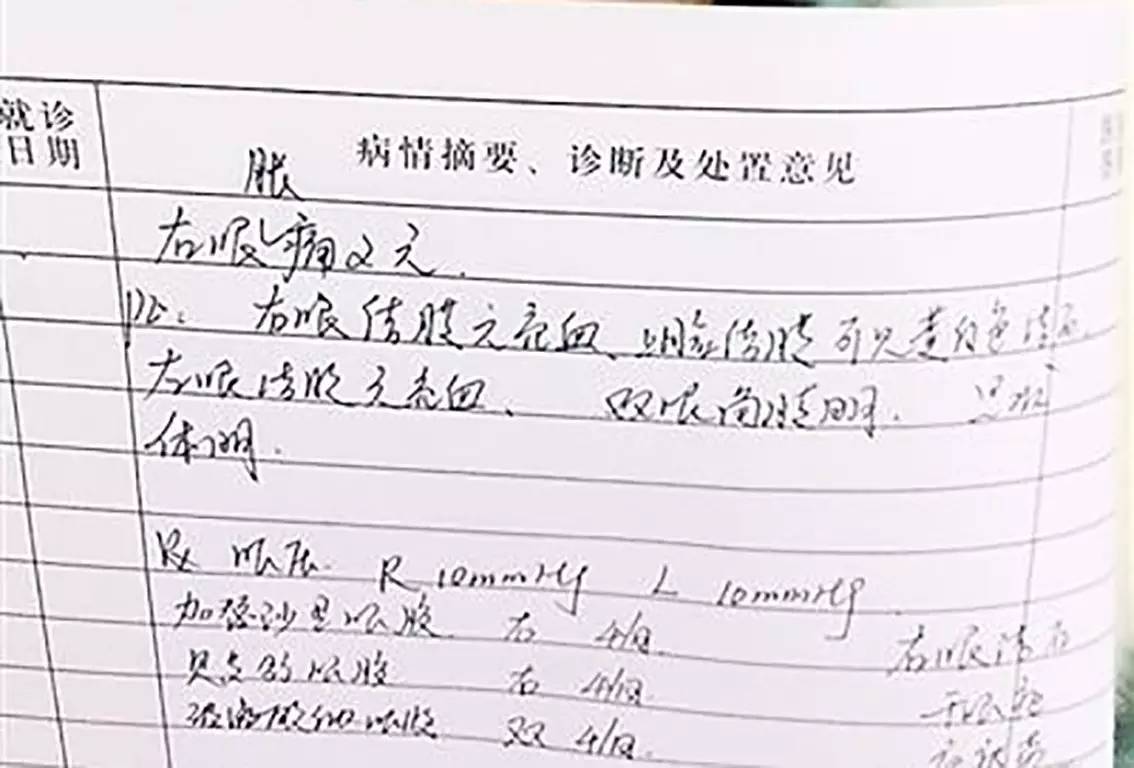 就诊
日期
病情摘要、诊断及处置意见
胀
右眼痛2天.
PE: 右眼结膜无充血、上睑结膜可见黄白色结石.
左眼结膜无充血、 双眼角膜明. 晶状
体明.
Rx 眼压. R 10mmHg L 10mmHg.
加替沙星眼胶 右 4/日.
贝复舒眼胶 右 4/日. 右眼结石
眼胶 双 4/日. 干眼症